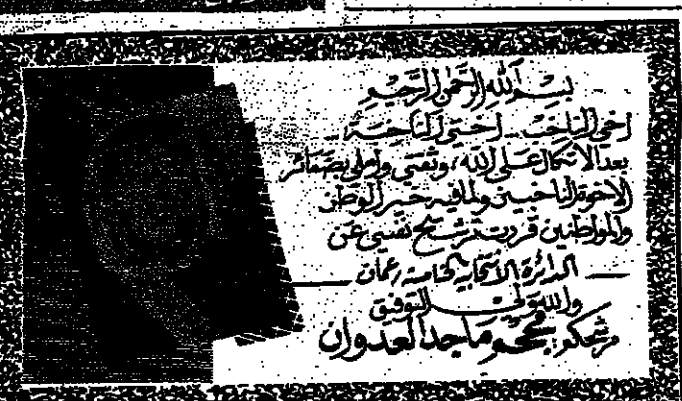 بسم الله الرحمن الرحيم
اخي الناخب .. اختي الناخبة ..
بعد الاتكال على الله، وثقتي واملي بضمائر
الاخوة الناخبين ولما فيه خير الوطن
والمواطنين قررت ترشيح نفسي عن
الدائرة الانتخابية الخامسة / عمان
والله ولي التوفيق
مرشحكم: ماجد العدوان